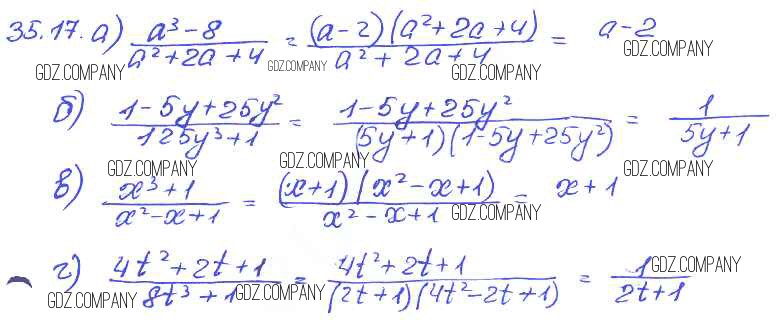 35.17. а) (a³-8)/(a²+2a+4) = ((a-2)(a²+2a+4))/(a²+2a+4) = a-2
GDZ.COMPANY GDZ.COMPANY GDZ.COMPANY GDZ.COMPANY
б) (1-5y+25y²)/(125y³+1) = (1-5y+25y²)/((5y+1)(1-5y+25y²)) = 1/(5y+1)
GDZ.COMPANY GDZ.COMPANY GDZ.COMPANY
в) (x³+1)/(x²-x+1) = ((x+1)(x²-x+1))/(x²-x+1) = x+1
GDZ.COMPANY
г) (4t²+2t+1)/(8t³+1) = (4t²+2t+1)/((2t+1)(4t²-2t+1)) = 1/(2t+1)
GDZ.COMPANY GDZ.COMPANY GDZ.COMPANY